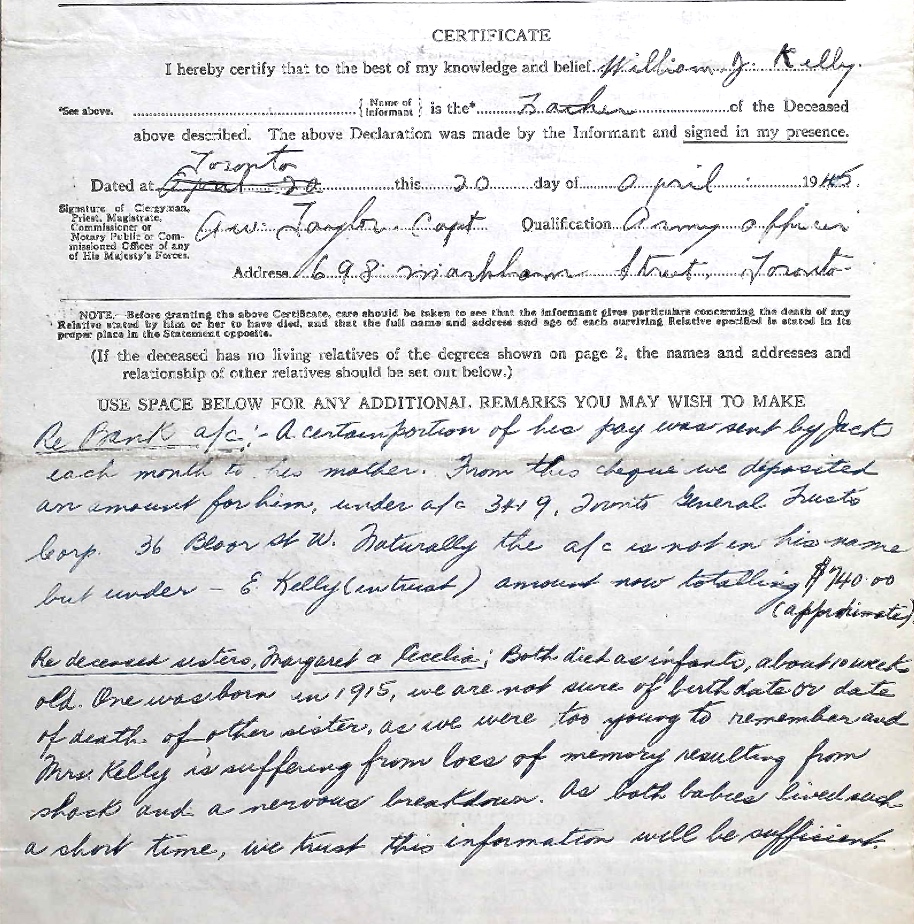 CERTIFICATE
I hereby certify that to the best of my knowledge and belief William J. Kelly.
*See above. { Name of Informant } is the* Father of the Deceased
above described. The above Declaration was made by the Informant and signed in my presence.
Toronto
Dated at April 20 this 20 day of April 1945.
Signature of Clergyman,
Priest, Magistrate,
Commissioner or
Notary Public or Com-
missioned Officer of any
of His Majesty's Forces.
A.W. Taylor Capt Qualification Army officer
Address 698 Markham Street, Toronto
NOTE. Before granting the above Certificate, care should be taken to see that the informant gives particulars concerning the death of any
Relative stated by him or her to have died, and that the full name and address and age of each surviving Relative specified is stated in its
proper place in the Statement opposite.
(If the deceased has no living relatives of the degrees shown on page 2, the names and addresses and
relationship of other relatives should be set out below.)
USE SPACE BELOW FOR ANY ADDITIONAL REMARKS YOU MAY WISH TO MAKE
Re Bank a/c:- A certain portion of his pay was sent by Jack
each month to his mother. From this cheque we deposited
an amount for him, under a/c 3419, Toronto General Trusts
Corp. 36 Bloor St W. Naturally the a/c is not in his name
but under - E. Kelly (in trust) amount now totalling $740.00
(approximate)
Re deceased sisters, Margaret & Cecelia; Both died as infants, about 10 weeks
old. One was born in 1915, we are not sure of birth date or date
of death of other sister, as we were too young to remember and
Mrs. Kelly is suffering from loss of memory resulting from
shock and a nervous breakdown. As both babies lived such
a short time, we trust this information will be sufficient.